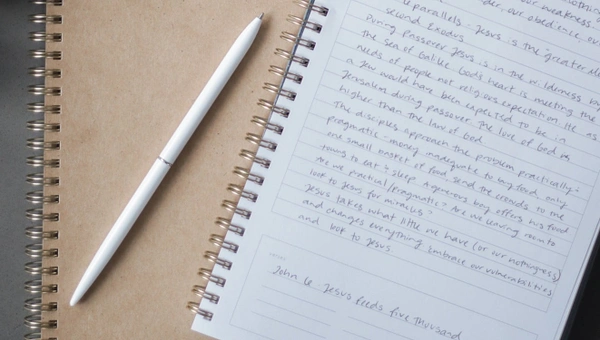 nothing
our weakness
der, our obedience, ou
parallels - Jesus is the "greater
second Exodus
During Passover Jesus is in the wilderness by
the Sea of Galilee. God's heart is meeting the
needs of people not religious expectation. He as
a Jew would have been expected to be in
Jerusalem during passover. The love of God is
higher than the law of God
The disciples approach the problem practically +
pragmatic - money inadequate to buy food, only
one small basket of food, send the crowds to the
towns to eat + sleep. A generous boy offers his food
Are we practical/pragmatic? Are we leaving room to
look to Jesus for miracles?
Jesus takes what little we have (or our nothingness)
and changes everything. Embrace our vulnerabilities
and look to Jesus.
John 6 Jesus feeds five thousand